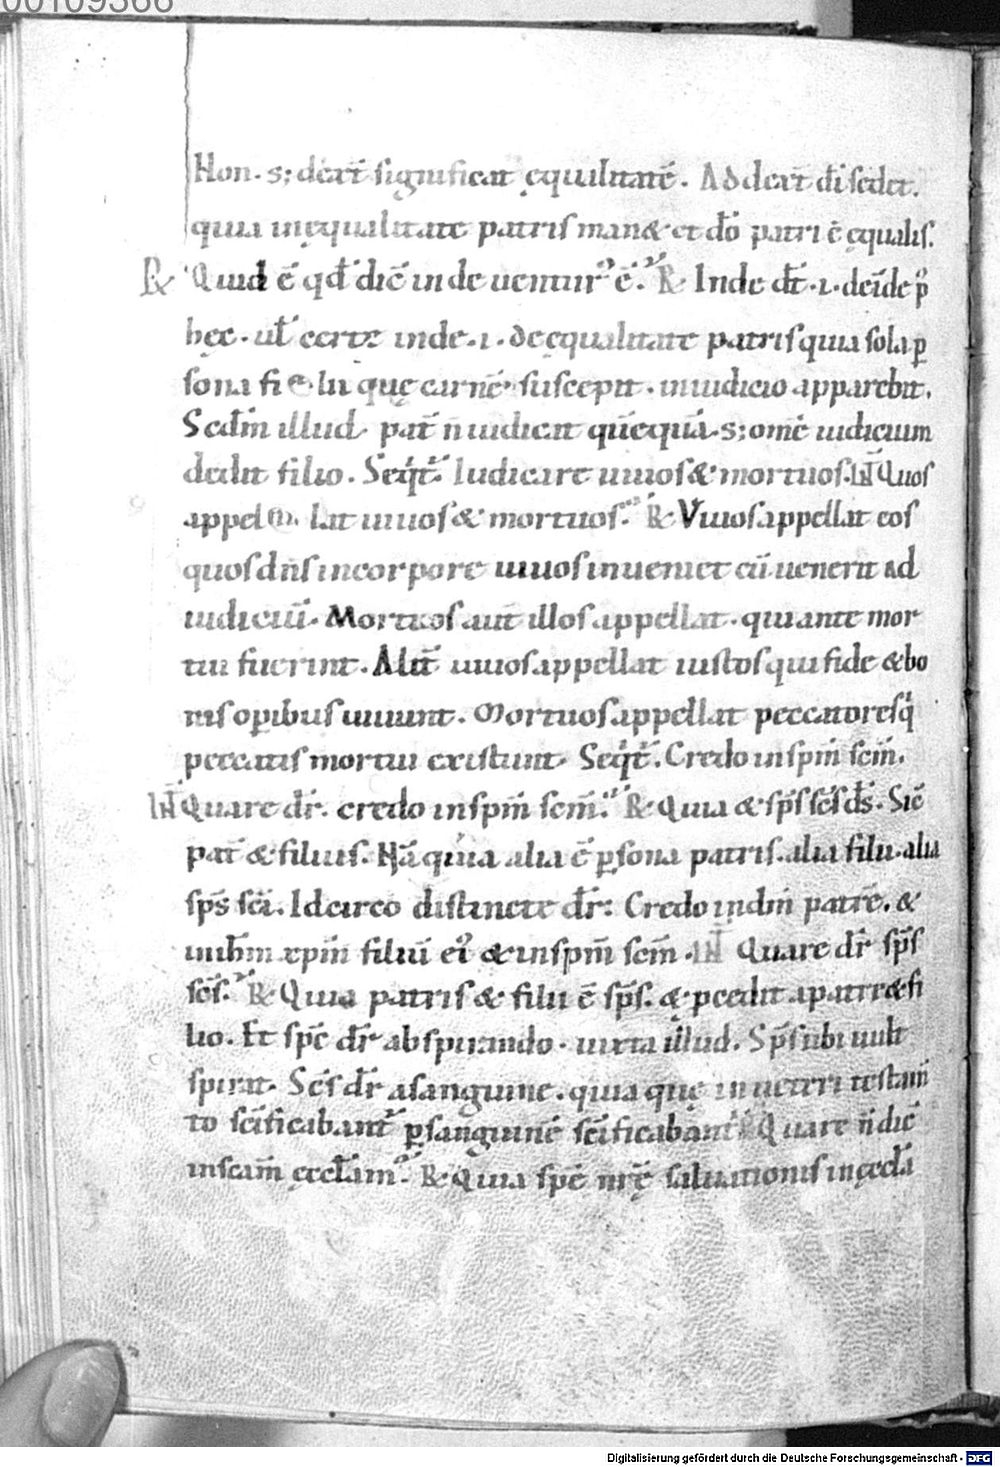 00109366
Hon. s; dext̄ significat ęqualitatē. Ad dext̄ d̄i sedet.
quia inęqualitate patris man& et dō patri ē ęqualis.
R Quid ē qd̄ dic̄ inde uentur᷒ ē. R Inde dr̄ .i. deīde p᷒
hęc. ul̄ certe inde .i. deęqualitate patris quia sola p̱
sona filii quę carnē suscepit. iniudicio apparebit.
Scdm̄ illud pat̄ n̄ iudicat quēquā. s; omē iudicium
dedit filio. Seqit̄. Iudicare uiuos & mortuos. IN̄ Quos
appellat uiuos & mortuos. R Viuos appellat eos
quos dn̄s incorpore uiuos inueniet cū uenerit ad
iudiciū. Mortuos aut̄ illos appellat. qui ante mor
tui fuerint. Alit̄ uiuos appellat iustos qui fide & bo
nis op̱ibus uiuunt. Mortuos appellat peccatores q̇
peccatis mortui existunt. Seqit̄. Credo inspm̄ scm̄.
IN̄ Quare dr̄. credo inspm̄ scm̄. R Quia & sp̄s sc̄s d̄s. Sic̄
pat̄ & filius. Nā quia alia ē p̱sona patris. alia filii. alia
sp̄s sc̄i. Idcirco distincte dr̄: Credo indm̄ patrē. &
inihm̄ xpm̄ filiū ei᷒ & inspm̄ scm̄. IN̄ Quare dr̄ sp̄s
sc̄s. R Quia patris & filii ē sp̄s. & pcedit apatre & fi
lio. Et sp̄c dr̄ ab spirando. iuxta illud. Sp̄s ubi uult
spirat. Sc̄s dr̄ asanguine. quia quę inueteri testam̄
to sc̄ificabant᷒ p̱sanguinē sc̄ificabant᷒ R Quare n̄ dic̄
inscam̄ ęccl̄am. R Quia spē nrę̄ saluationis in ęccl̄a
Digitalisierung gefördert durch die Deutsche Forschungsgemeinschaft - DFG